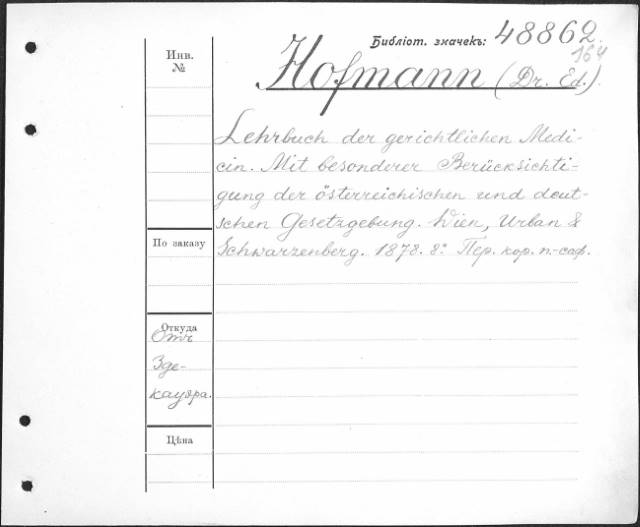 Библіот. значекъ: 48862.
164
Инв.
№
Hofmann (Dr. Ed.).
Lehrbuch der gerichtlichen Medi-
cin. Mit besonderer Berücksichti-
gung der österreichischen und deut-
schen Gesetzgebung. Wien, Urban &
По заказу
Schwarzenberg. 1878. 8º. Пер. кор. п.-саф.
Откуда
Отъ
Зде-
кауэра.
Цѣна